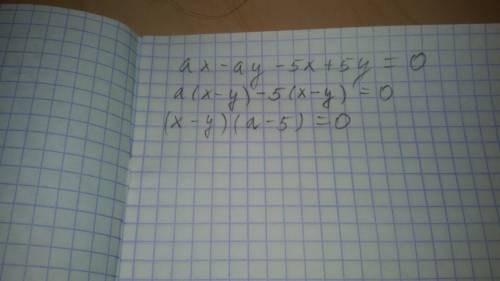 ax - ay - 5x + 5y = 0
a(x-y) - 5(x-y) = 0
(x-y)(a-5) = 0